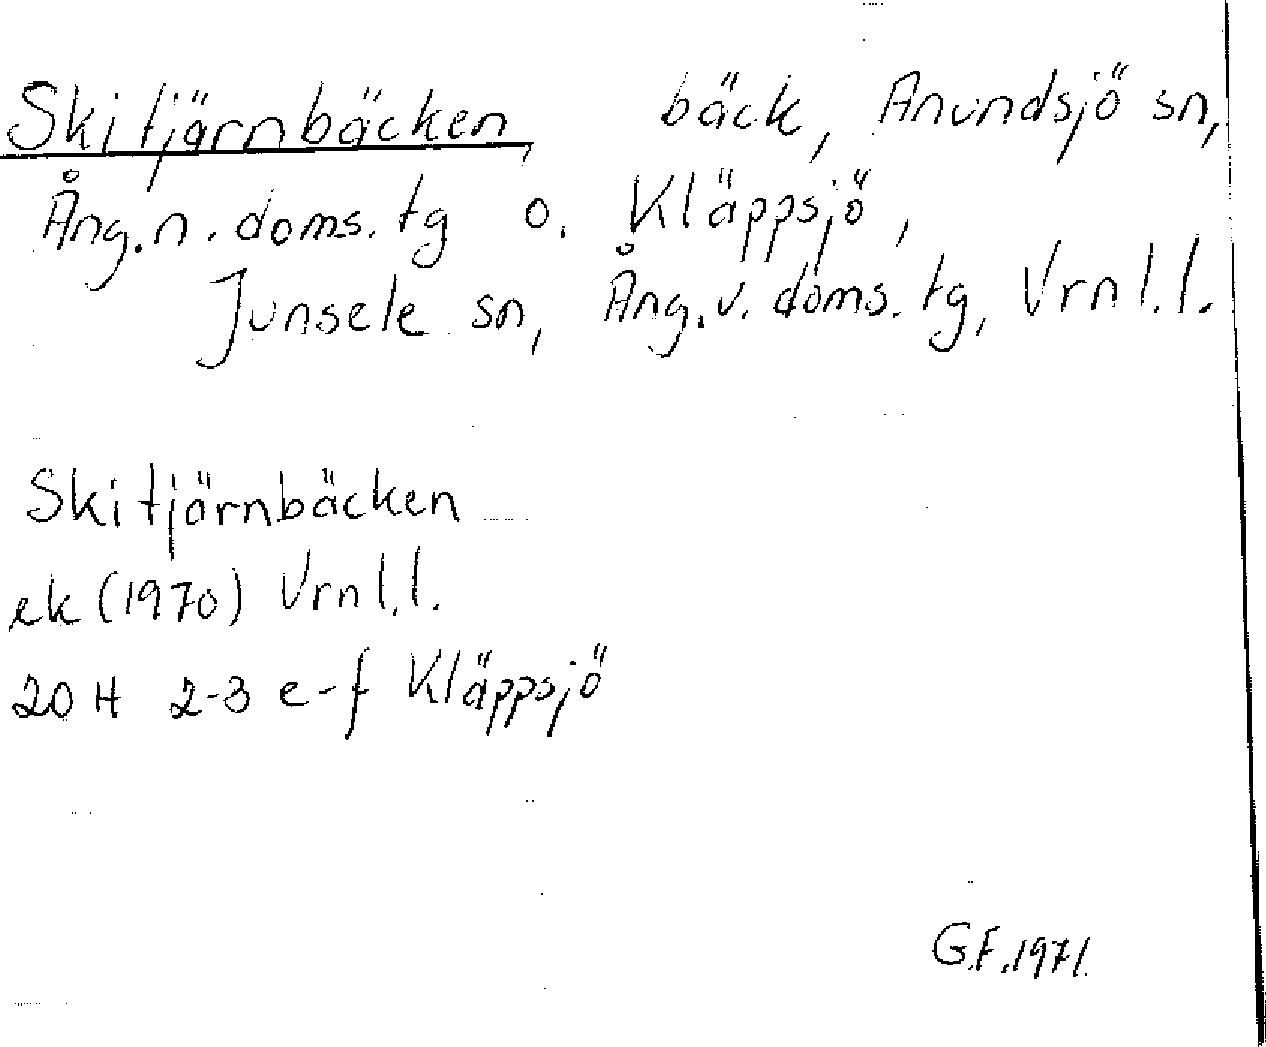 Skitjärnbäcken, bäck, Anundsjö sn,
Ång.n.doms.tg o. Kläppsjö,
Junsele sn, Ång.v.doms.tg, Vrnl.l.
Skitjärnbäcken
ek (1970) Vrnl.l.
20 H 2-3 e-f Kläppsjö
G.F.1971.